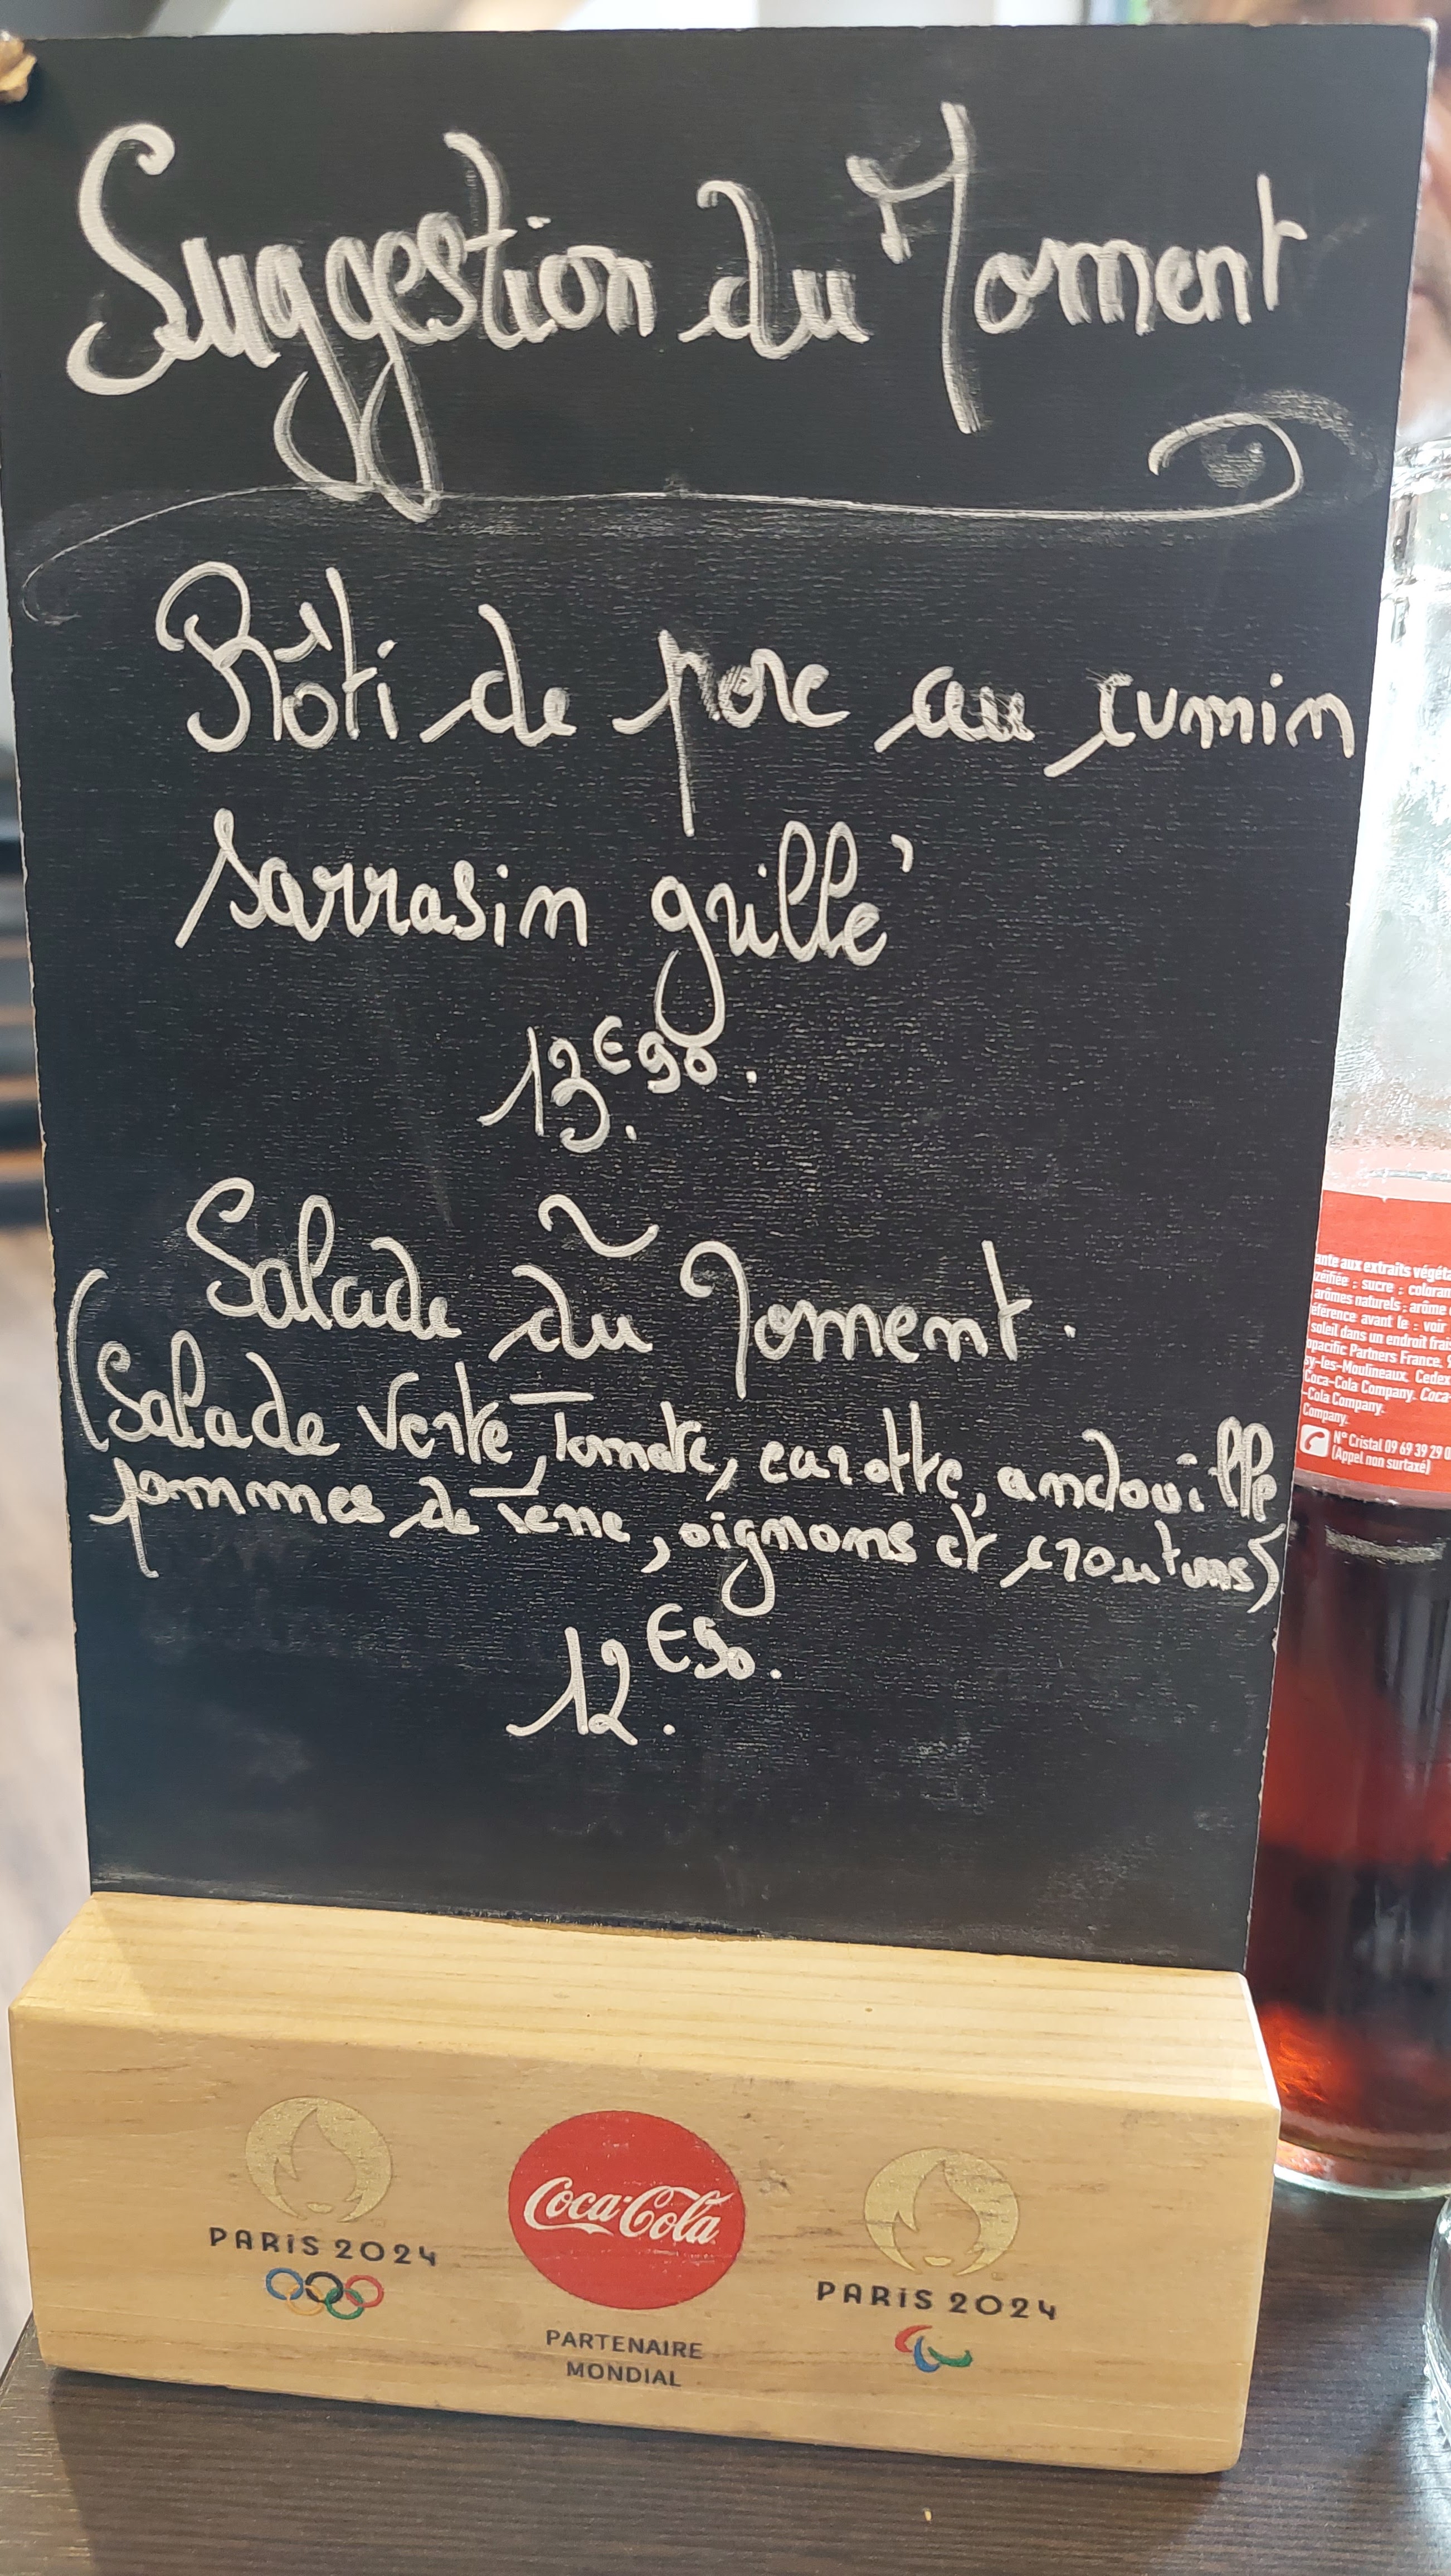 Suggestion du Moment
Rôti de porc au cumin
sarrasin grillé
13.€90.
~
Salade du Moment.
(Salade Verte, Tomate, carotte, andouille
pommes de Terre, oignons et croutons)
12.€50.
PARIS 2024
Coca-Cola
PARTENAIRE
MONDIAL
PARIS 2024
ante aux extraits végéta
zéifiée : sucre ; coloran
arômes naturels ; arôme
éférence avant le : voir
soleil dans un endroit frais
opacific Partners France, 9
sy-les-Moulineaux, Cedex
Coca-Cola Company. Coca-
-Cola Company.
Company.
N° Cristal 09 69 39 29 0
(Appel non surtaxé)